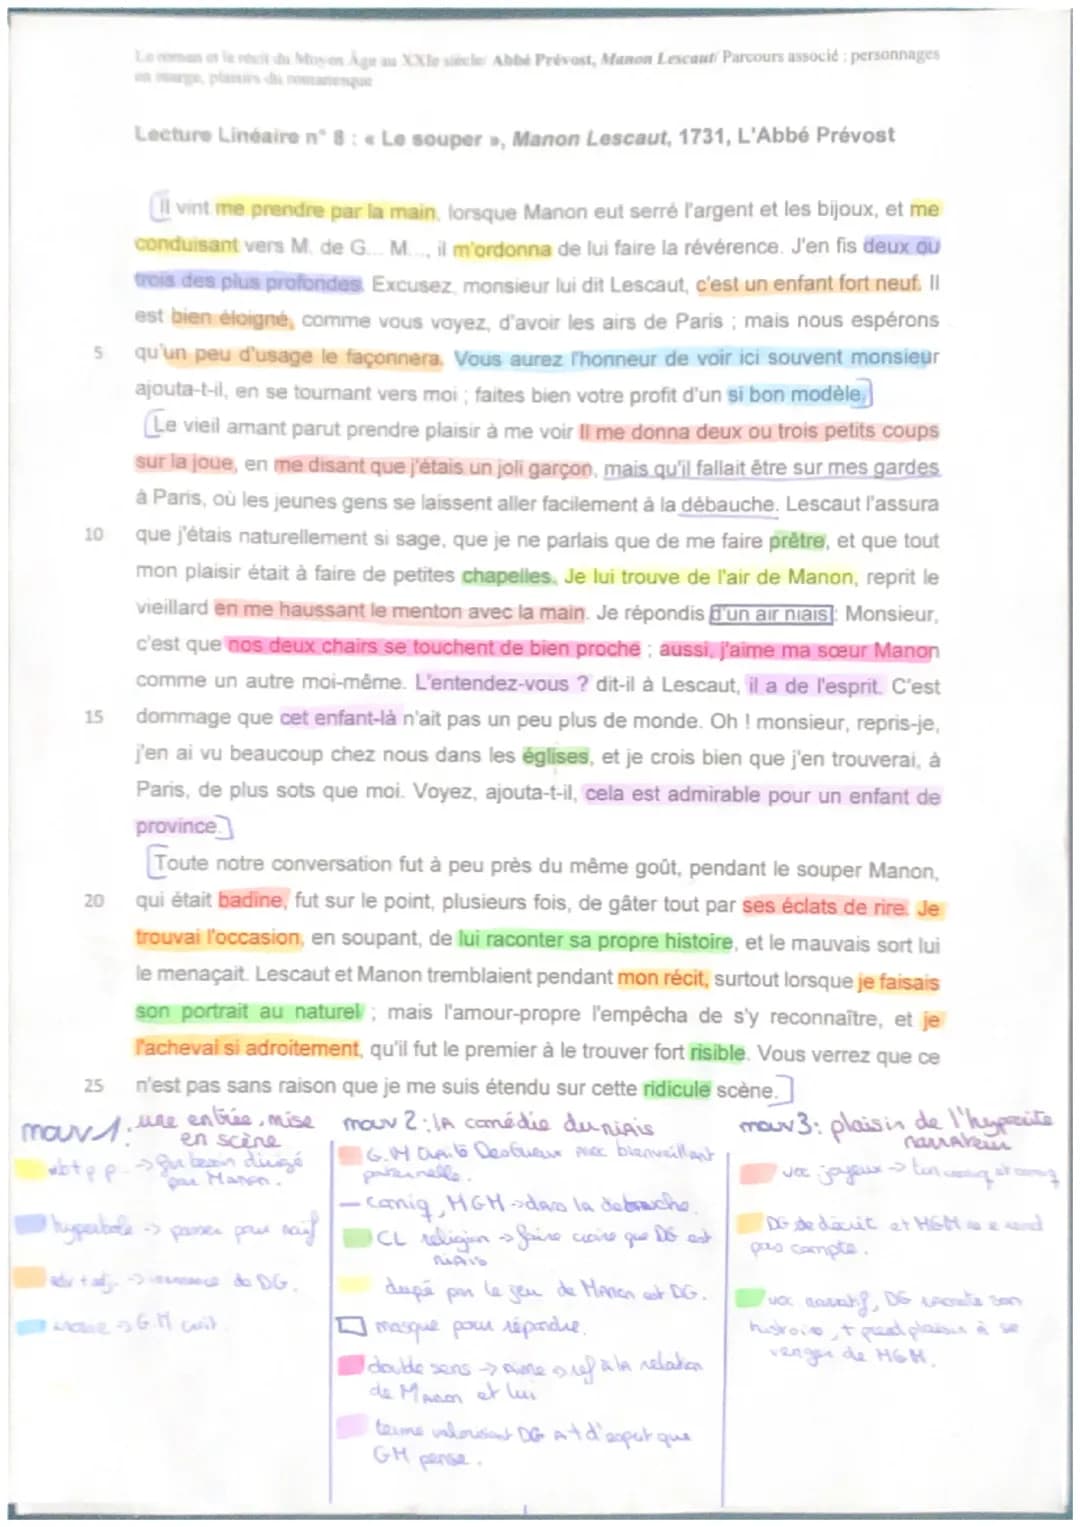 Le roman et le récit du Moyen Âge au XXIe siècle/ Abbé Prévost, Manon Lescaut/ Parcours associé : personnages
en marge, plaisirs du romanesque
Lecture Linéaire n° 8 : « Le souper », Manon Lescaut, 1731, L'Abbé Prévost
Il vint me prendre par la main, lorsque Manon eut serré l'argent et les bijoux, et me
conduisant vers M. de G... M..., il m'ordonna de lui faire la révérence. J'en fis deux ou
trois des plus profondes. Excusez, monsieur lui dit Lescaut, c'est un enfant fort neuf. Il
est bien éloigné, comme vous voyez, d'avoir les airs de Paris ; mais nous espérons
5 qu'un peu d'usage le façonnera. Vous aurez l'honneur de voir ici souvent monsieur
ajouta-t-il, en se tournant vers moi ; faites bien votre profit d'un si bon modèle.
Le vieil amant parut prendre plaisir à me voir Il me donna deux ou trois petits coups
sur la joue, en me disant que j'étais un joli garçon, mais qu'il fallait être sur mes gardes
à Paris, où les jeunes gens se laissent aller facilement à la débauche. Lescaut l'assura
10 que j'étais naturellement si sage, que je ne parlais que de me faire prêtre, et que tout
mon plaisir était à faire de petites chapelles. Je lui trouve de l'air de Manon, reprit le
vieillard en me haussant le menton avec la main. Je répondis d'un air niais : Monsieur,
c'est que nos deux chairs se touchent de bien proche ; aussi, j'aime ma sœur Manon
comme un autre moi-même. L'entendez-vous ? dit-il à Lescaut, il a de l'esprit. C'est
15 dommage que cet enfant-là n'ait pas un peu plus de monde. Oh ! monsieur, repris-je,
j'en ai vu beaucoup chez nous dans les églises, et je crois bien que j'en trouverai, à
Paris, de plus sots que moi. Voyez, ajouta-t-il, cela est admirable pour un enfant de
province.
Toute notre conversation fut à peu près du même goût, pendant le souper Manon,
20 qui était badine, fut sur le point, plusieurs fois, de gâter tout par ses éclats de rire. Je
trouvai l'occasion, en soupant, de lui raconter sa propre histoire, et le mauvais sort lui
le menaçait. Lescaut et Manon tremblaient pendant mon récit, surtout lorsque je faisais
son portrait au naturel ; mais l'amour-propre l'empêcha de s'y reconnaître, et je
l'achevai si adroitement, qu'il fut le premier à le trouver fort risible. Vous verrez que ce
25 n'est pas sans raison que je me suis étendu sur cette ridicule scène.
mouv 1: une entrée, mise
en scène
-> par Manon.
hyperbole -> passer pour naïf
adv + adj. -> innocence de DG.
-> G.M
mouv 2 : LA comédie du niais
G.M traite Desgrieux avec bienveillant
paternelle.
- comiq, MGM -> dans la debauche.
CL religion -> faire croire que DG est
niais
dupé par le jeu de Manon et DG.
masque pour répondre.
double sens -> aime -> ref à la relation
de Manon et lui
terme valorisant DG A + d'esprit que
GM pense.
mouv 3 : plaisir de l'hypocrite
narrateur
voc joyeux ->
DG se décrit et MGM ne rend
pas compte.
voc narratif, DG raconte son
histoire, + prend plaisir à se
venger de MGM.